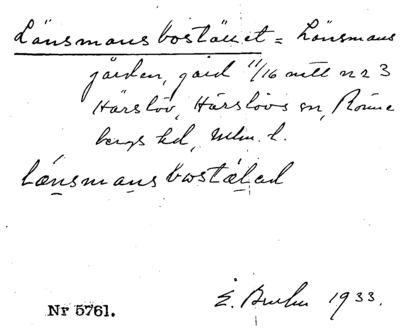 Länsmansbostället = Länsmans
gården, gård 11/16 mtl nr 3
Härslöv, Härslövs sn, Rönne
bergs hd, Mlm. l.
lænsmansbostälad
Nr 5761. E. 1933.